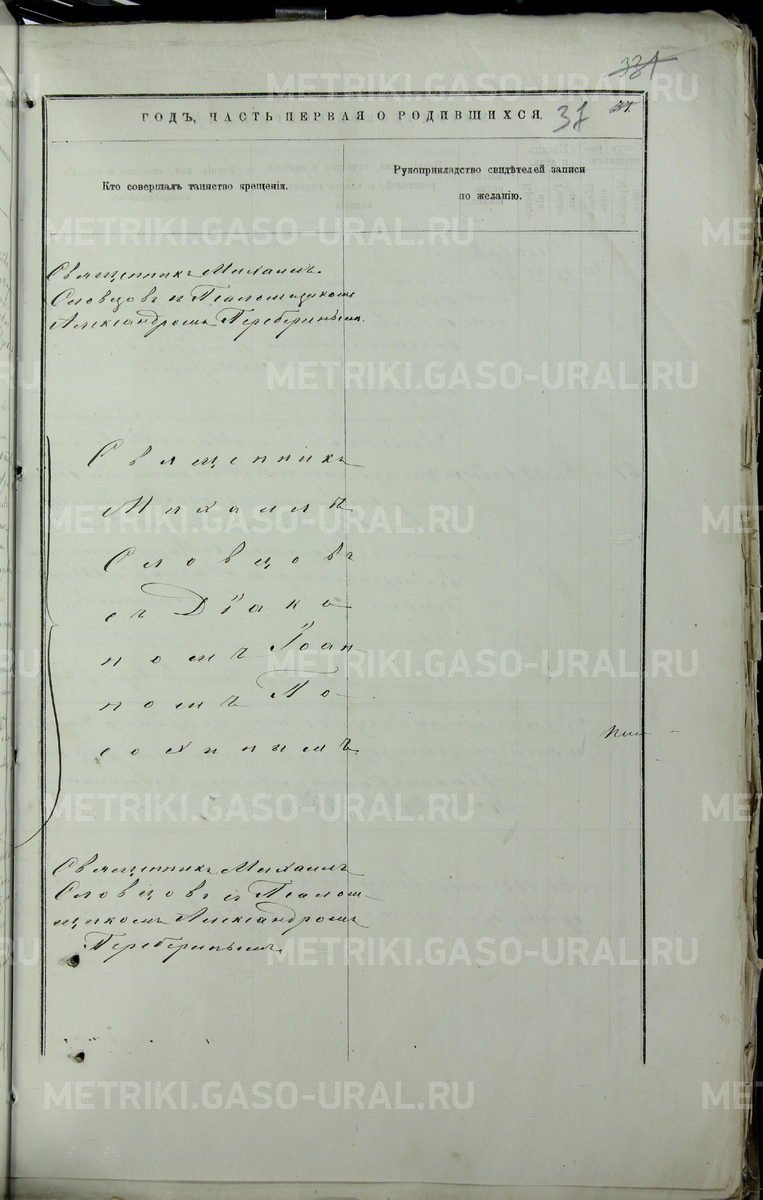 331
ГОДЪ, ЧАСТЬ ПЕРВАЯ О РОДИВШИХСЯ. 37
Кто совершалъ таинство крещенія.
Рукоприкладство свидѣтелей записи
по желанію.
Священникъ Михаилъ
Словцовъ съ Псаломщикомъ
Александромъ Переберинымъ.
Священникъ
Михаилъ
Словцовъ
съ Діако
номъ Іоан
номъ По
сохинымъ
Священникъ Михаилъ
Словцовъ съ Псалом-
щикомъ Александромъ
Переберинымъ.
METRIKI.GASO-URAL.RU